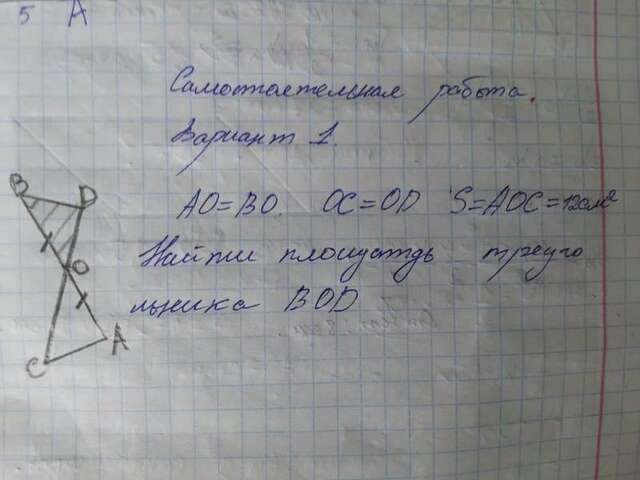 5 А
Самостоятельная работа.
Вариант 1.
B
D
AO=BO. OC=OD S=AOC=12см²
O
Найти площадь треуго
льника BOD
A
C